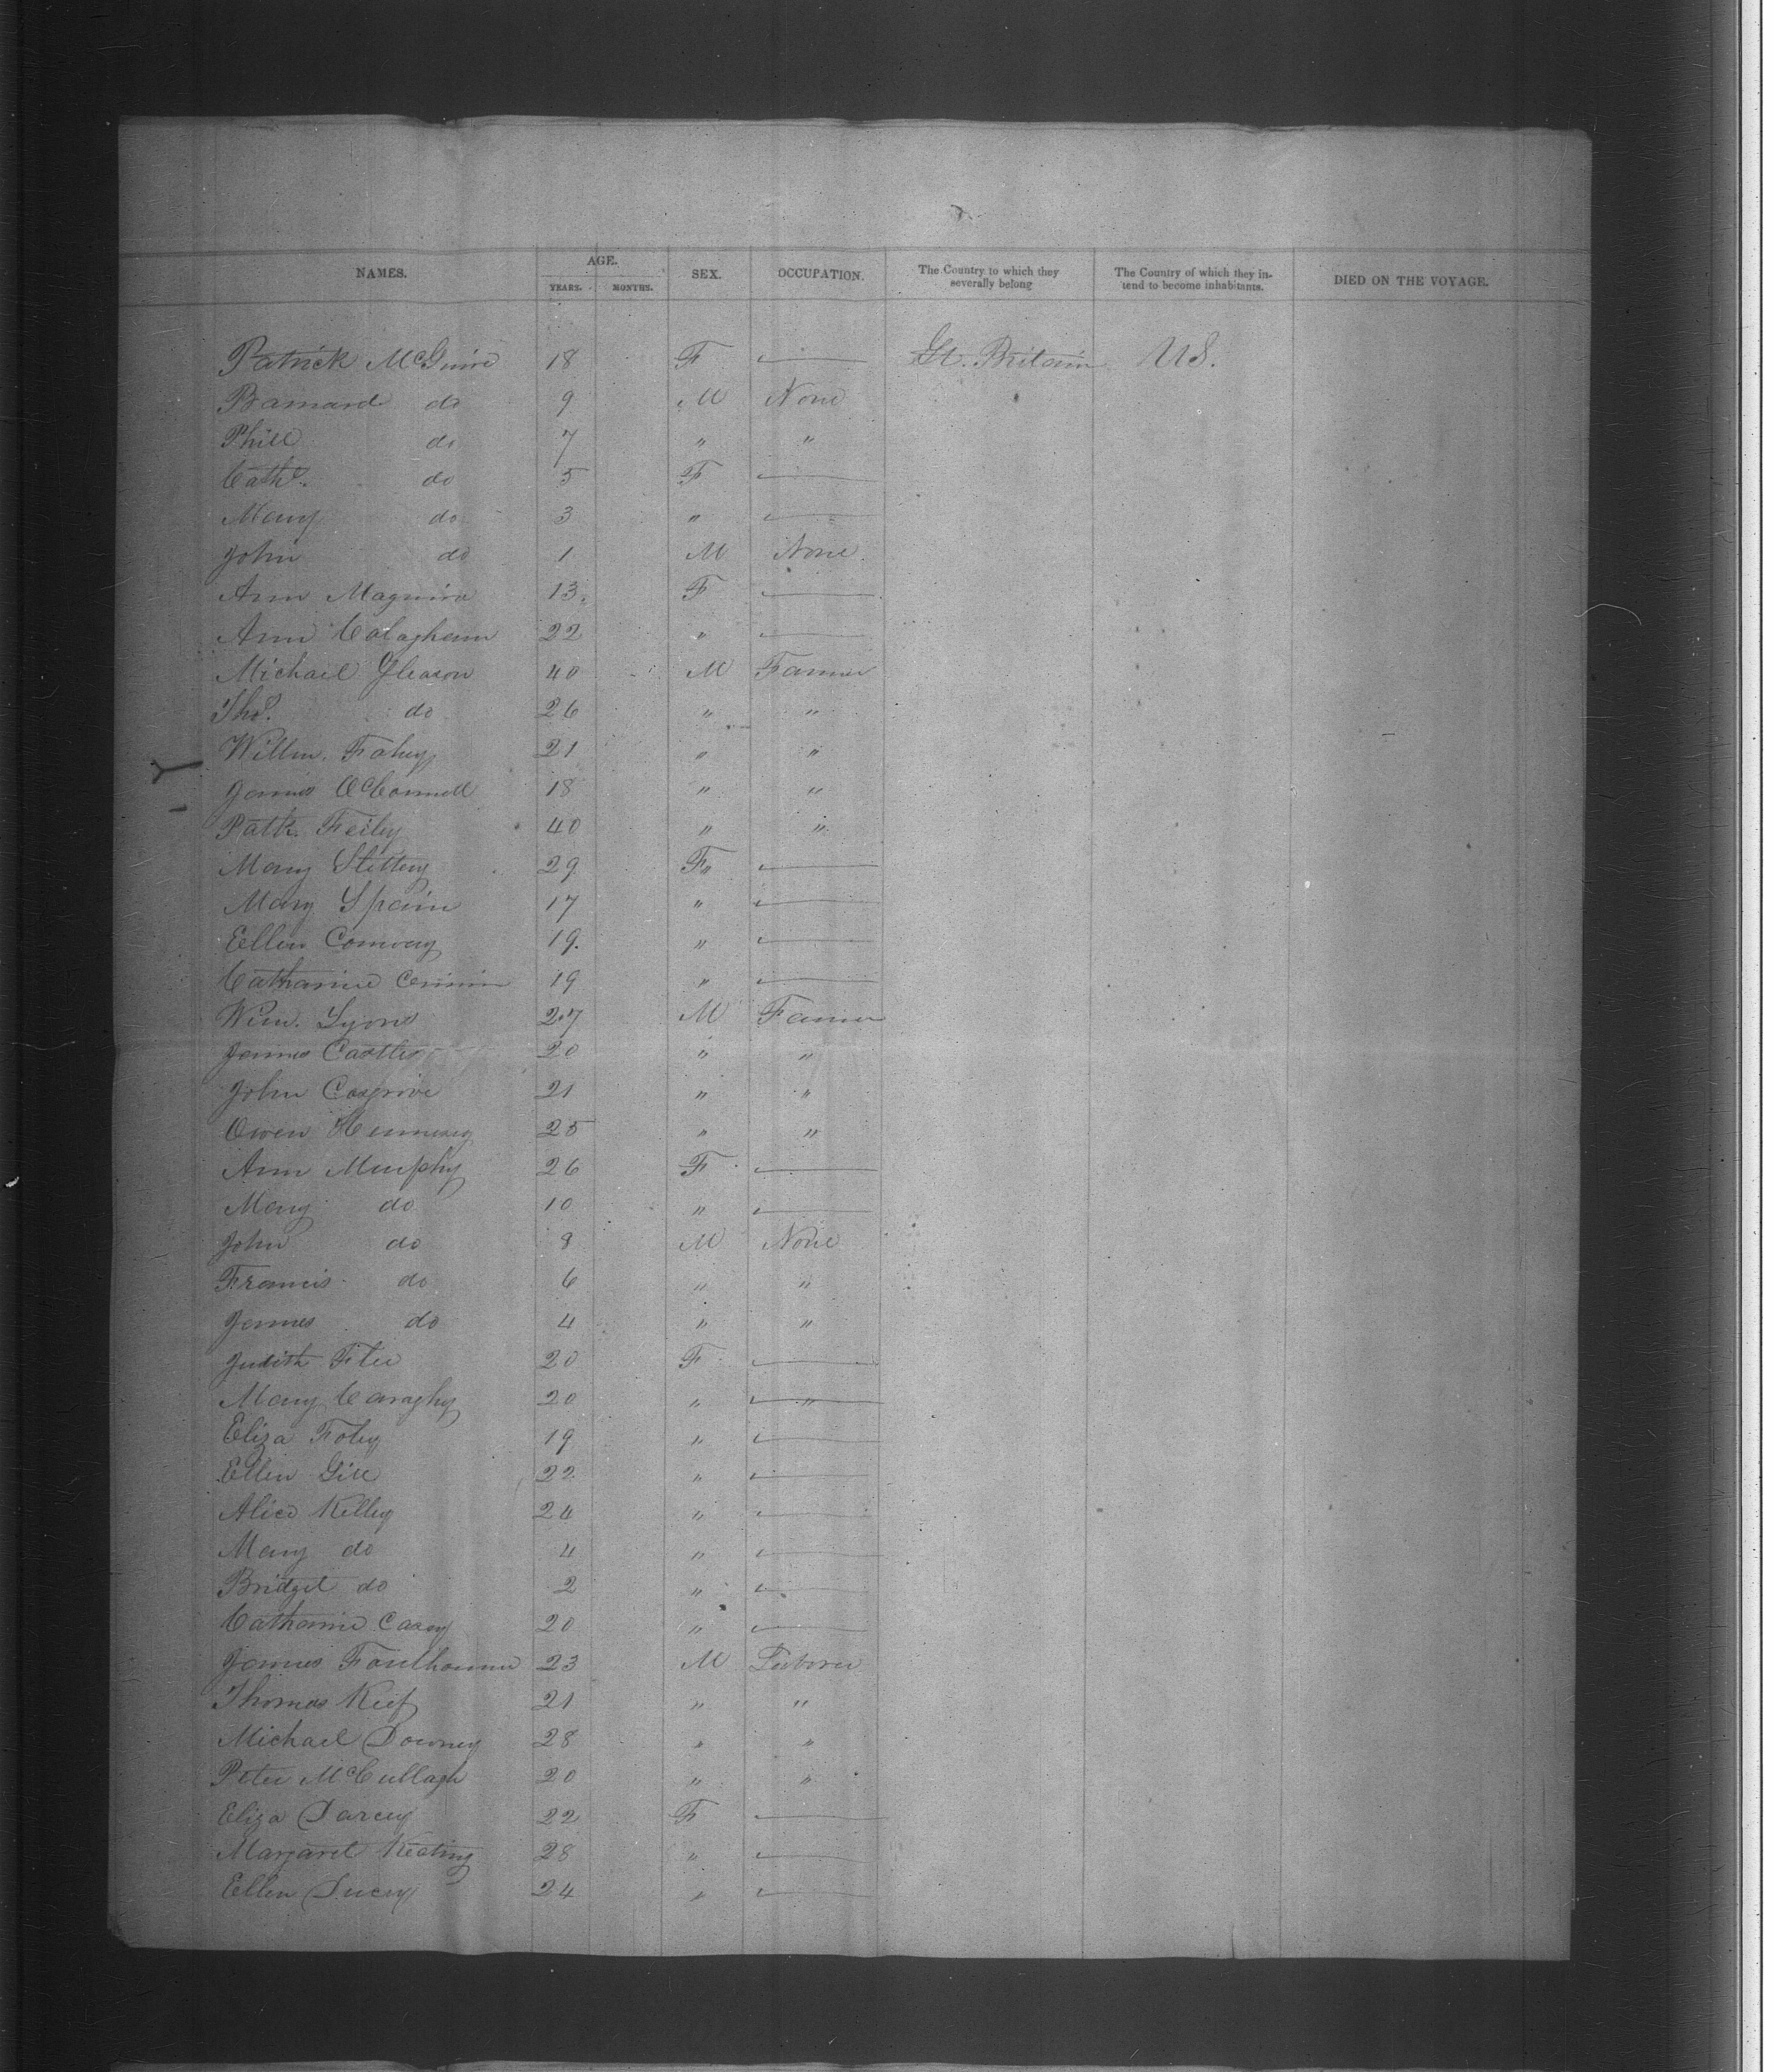 NAMES. AGE. YEARS. MONTHS. SEX. OCCUPATION. The Country to which they severally belong The Country of which they in-tend to become inhabitants. DIED ON THE VOYAGE.
Patrick McGuire 18 F — Gt. Britain U.S.
Barnard do 9 M None
Phill do 7 " "
Cath. do 5 F —
Mary do 3 " —
John do 1 M None
Ann Maguire 13 F —
Ann Calaghann 22 " —
Michael Gleason 40 M Farmer
Thos. do 26 " "
Willm. Fahey 21 " "
James 18 " "
Patk. 40 " "
Mary 29 F" —
Mary Spain 17 " —
Ellen Conway 19. " —
Catharine 19 " —
Wm. Lyons 27 M Farmer
James 20 " "
John Cosgrive 21 " "
Owen Hennesey 25 " "
Ann Murphy 26 F —
Mary do 10 " —
John do 8 M None
Francis do 6 " "
James do 4 " "
Judith 20 F —
Mary Caraghy 20 " — "
Eliza Foley 19 " —
Ellen Gill 22 " —
Alice Kelley 24 " —
Mary do 4 " —
Bridget do 2 " —
Catharine Casey 20 " —
James 23 M Laborer
Thomas Kief 21 " "
Michael Downey 28 " "
Peter McCullagh 20 " "
Eliza Darcey 22 F —
Margaret Keating 28 " —
Ellen Ducey 24 " —